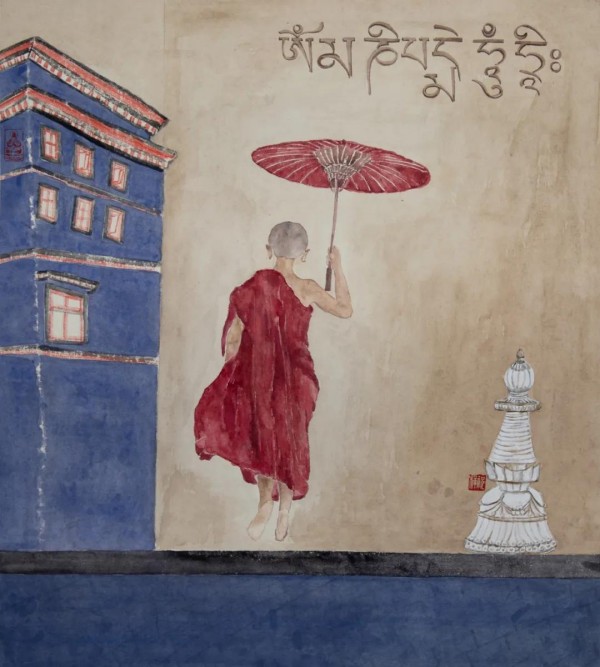 ཨོཾ མ ཎི པ དྨེ ཧཱུྃ ཧྲཱིཿ